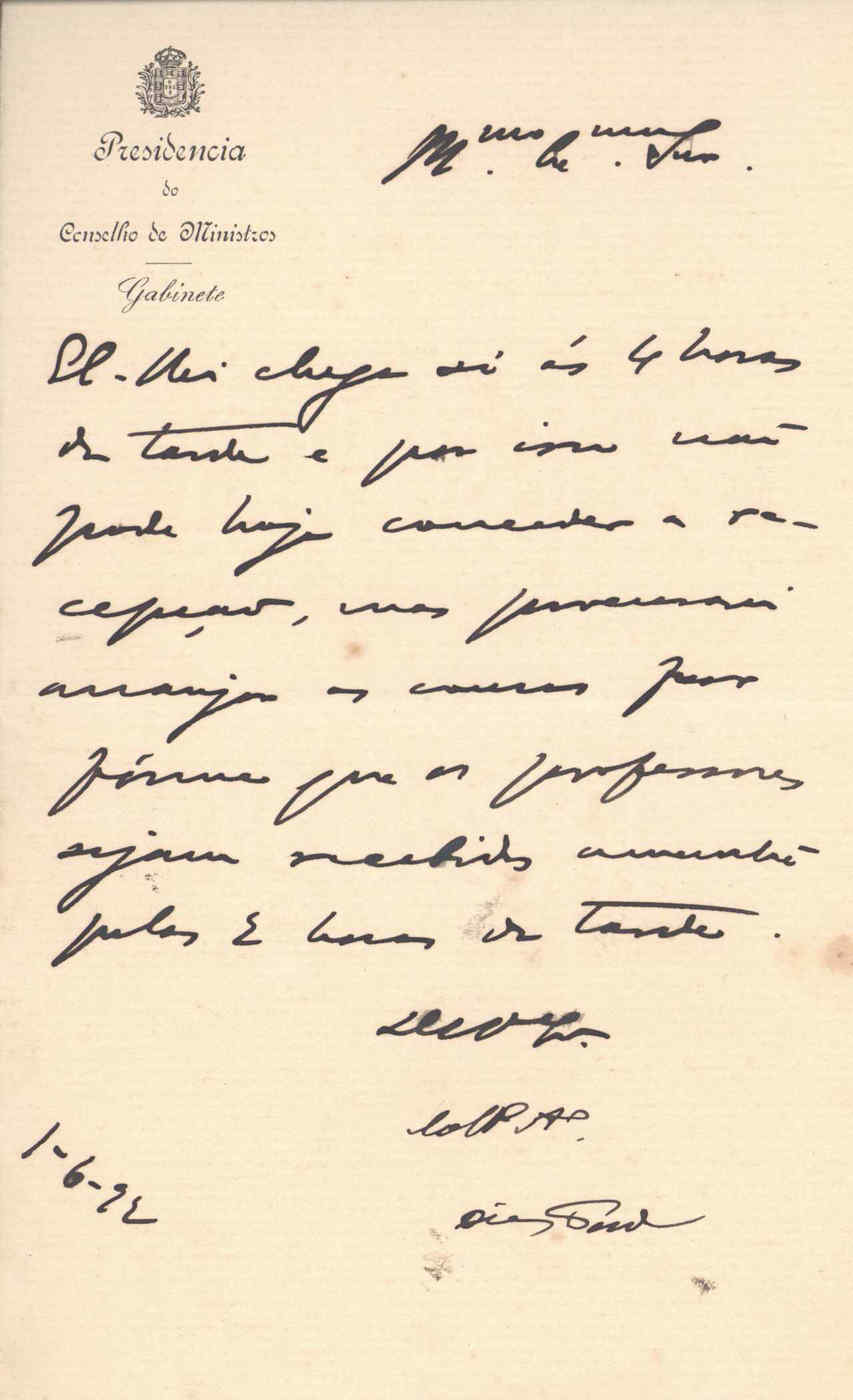 Presidencia
do
Conselho de Ministros
Gabinete
M.mo . Snr.
El-Rei chega só ás 4 horas
da tarde e por isso não
pode hoje conceder a re-
cepção, mas procurarei
arranjar as cousas por
fórma que os professores
sejam recebidos amanhã
pelas 2 horas da tarde.
1-6-92
Dias